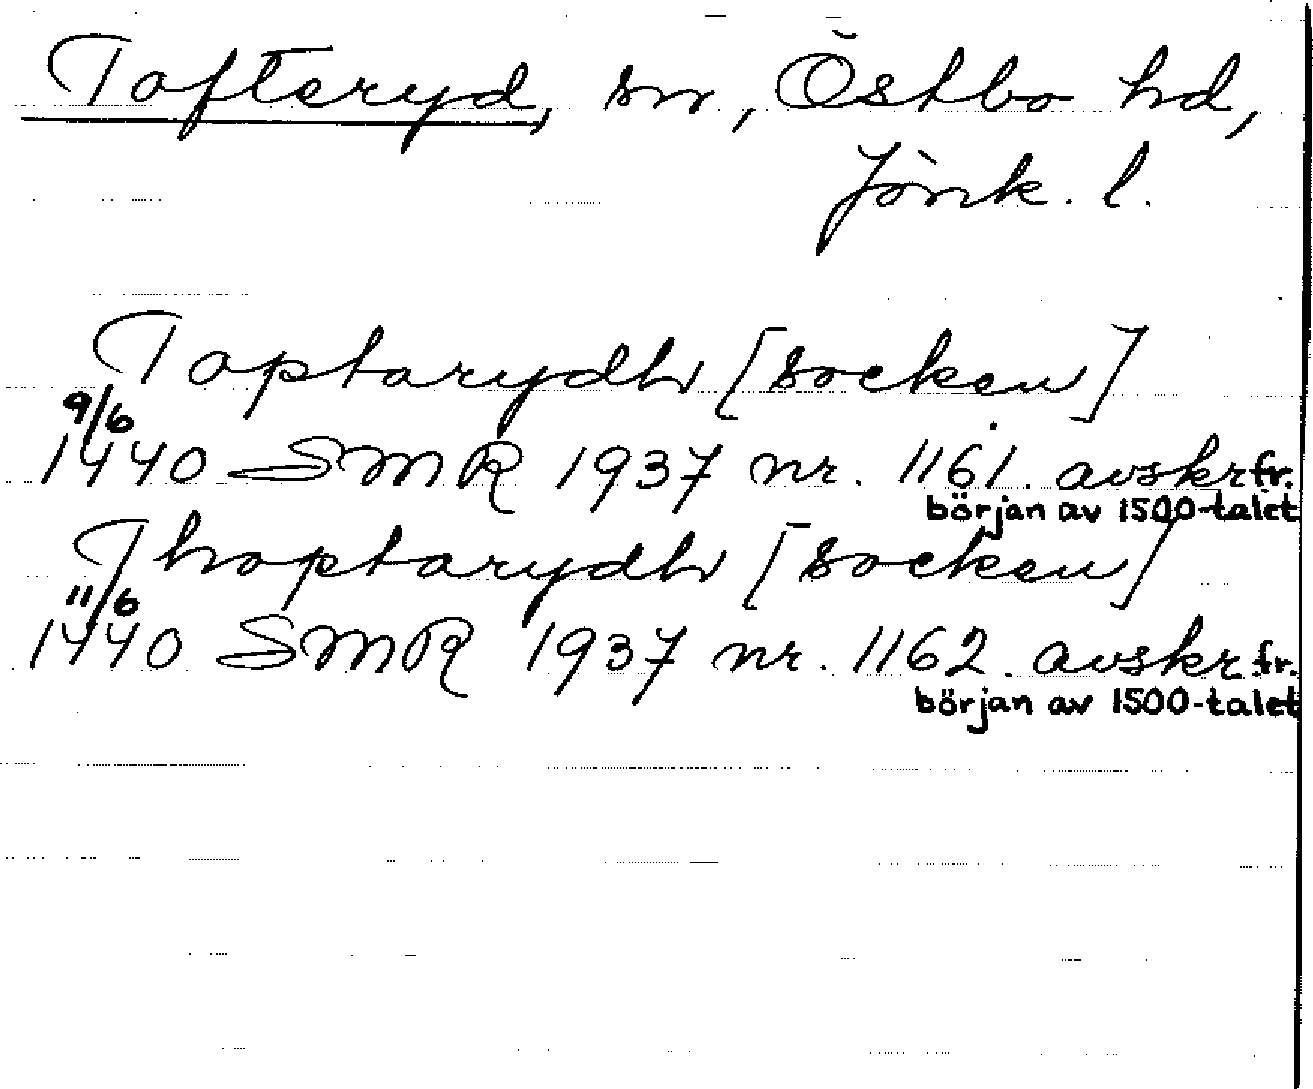 Tofteryd, sn, Östbo hd,
Jönk. l.
Toptarydh [socken]
9/6
1440 SMR 1937 nr. 1161. avskr fr.
början av 1500-talet
Thoptarydh [socken]
11/6
1440 SMR 1937 nr. 1162. avskr. fr.
början av 1500-talet